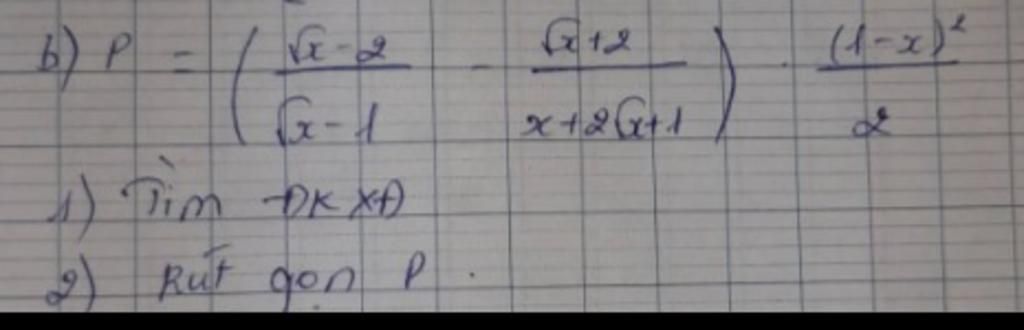 b) P = ( (√x - 2)/(√x - 1) - (√x + 2)/(x + 2√x + 1) ) . (1 - x)²/2
1) Tìm ĐKXĐ
2) Rút gọn P.